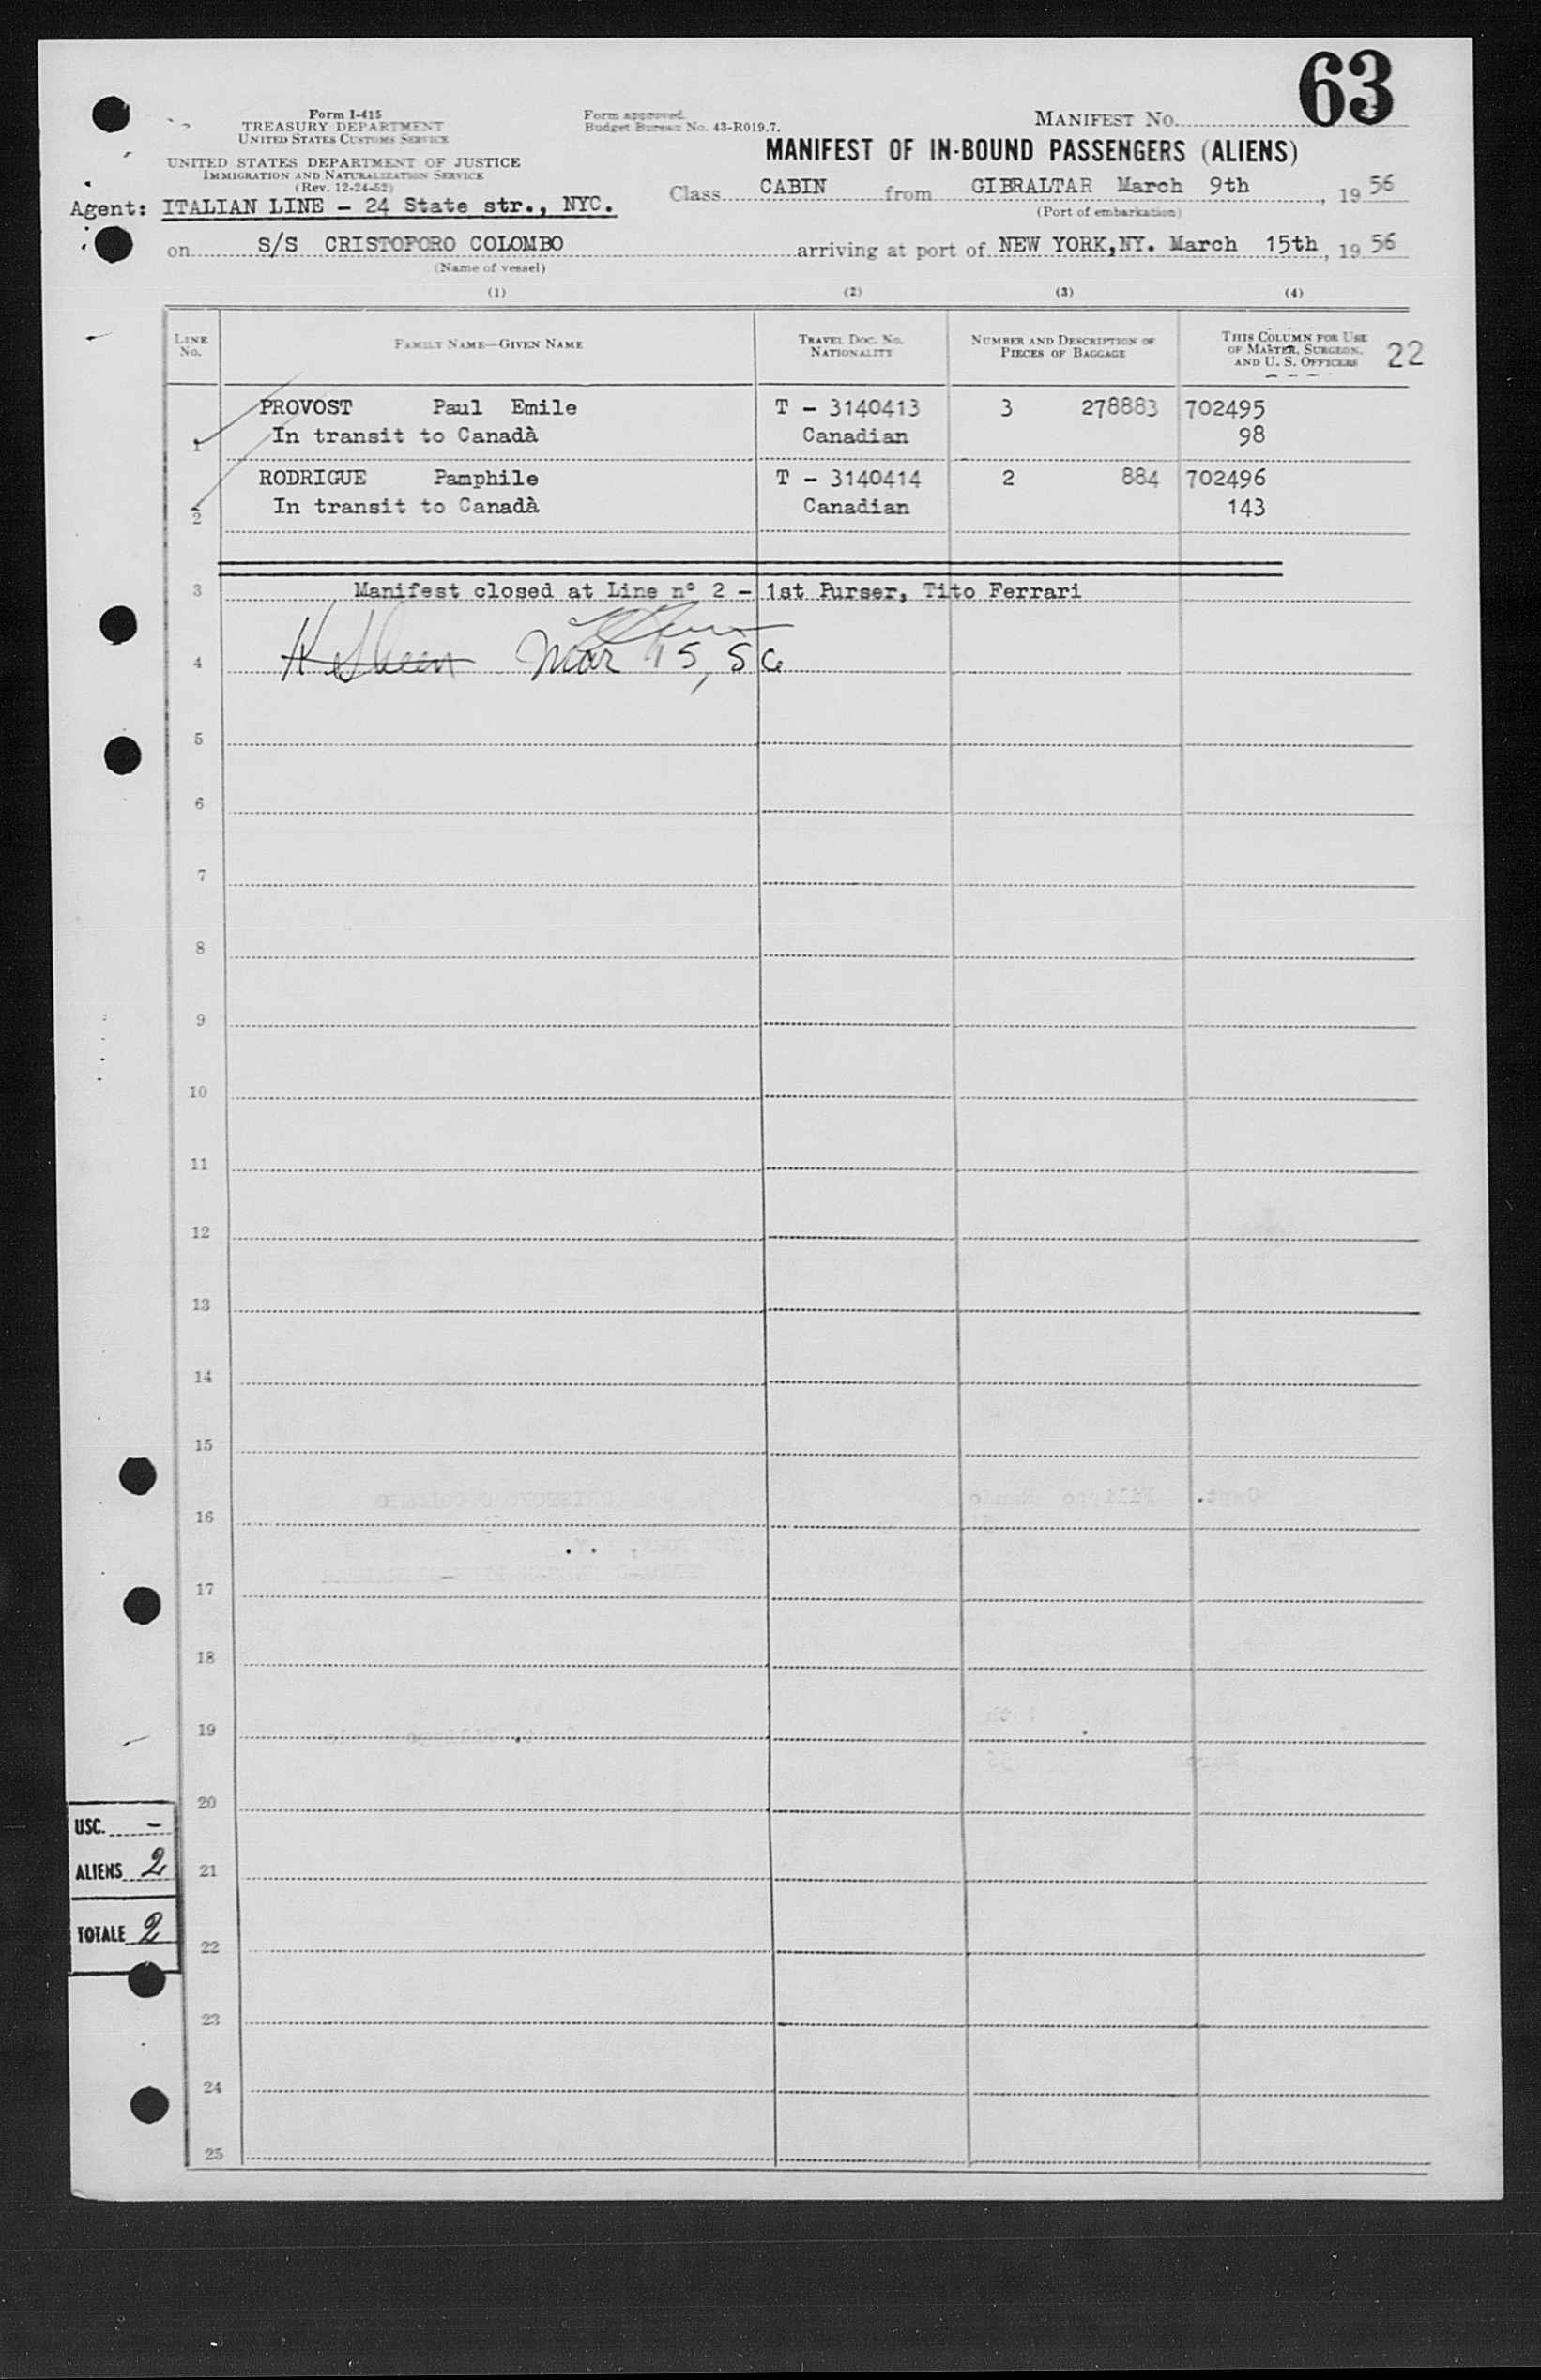 63
Form I-415
TREASURY DEPARTMENT
UNITED STATES CUSTOMS SERVICE
UNITED STATES DEPARTMENT OF JUSTICE
IMMIGRATION AND NATURALIZATION SERVICE
(Rev. 12-24-52)
Form approved.
Budget Bureau No. 43-R019.7.
MANIFEST NO.
MANIFEST OF IN-BOUND PASSENGERS (ALIENS)
Agent: ITALIAN LINE - 24 State str., NYC.
Class CABIN from GIBRALTAR March 9th, 19 56
(Port of embarkation)
on S/S CRISTOFORO COLOMBO arriving at port of NEW YORK,NY. March 15th, 19 56
(Name of vessel)
(1) (2) (3) (4)
LINE NO. FAMILY NAME—GIVEN NAME TRAVEL DOC. NO. NATIONALITY NUMBER AND DESCRIPTION OF PIECES OF BAGGAGE THIS COLUMN FOR USE OF MASTER, SURGEON, AND U. S. OFFICERS 22
PROVOST Paul Emile T - 3140413 3 278883 702495
1 In transit to Canadà Canadian 98
RODRIGUE Pamphile T - 3140414 2 884 702496
2 In transit to Canadà Canadian 143
3 Manifest closed at Line n° 2 - 1st Purser, Tito Ferrari
4 Mar 15, 56
5
6
7
8
9
10
11
12
13
14
15
16
17
18
19
20
USC. -
ALIENS 2
21
TOTALE 2
22
23
24
25